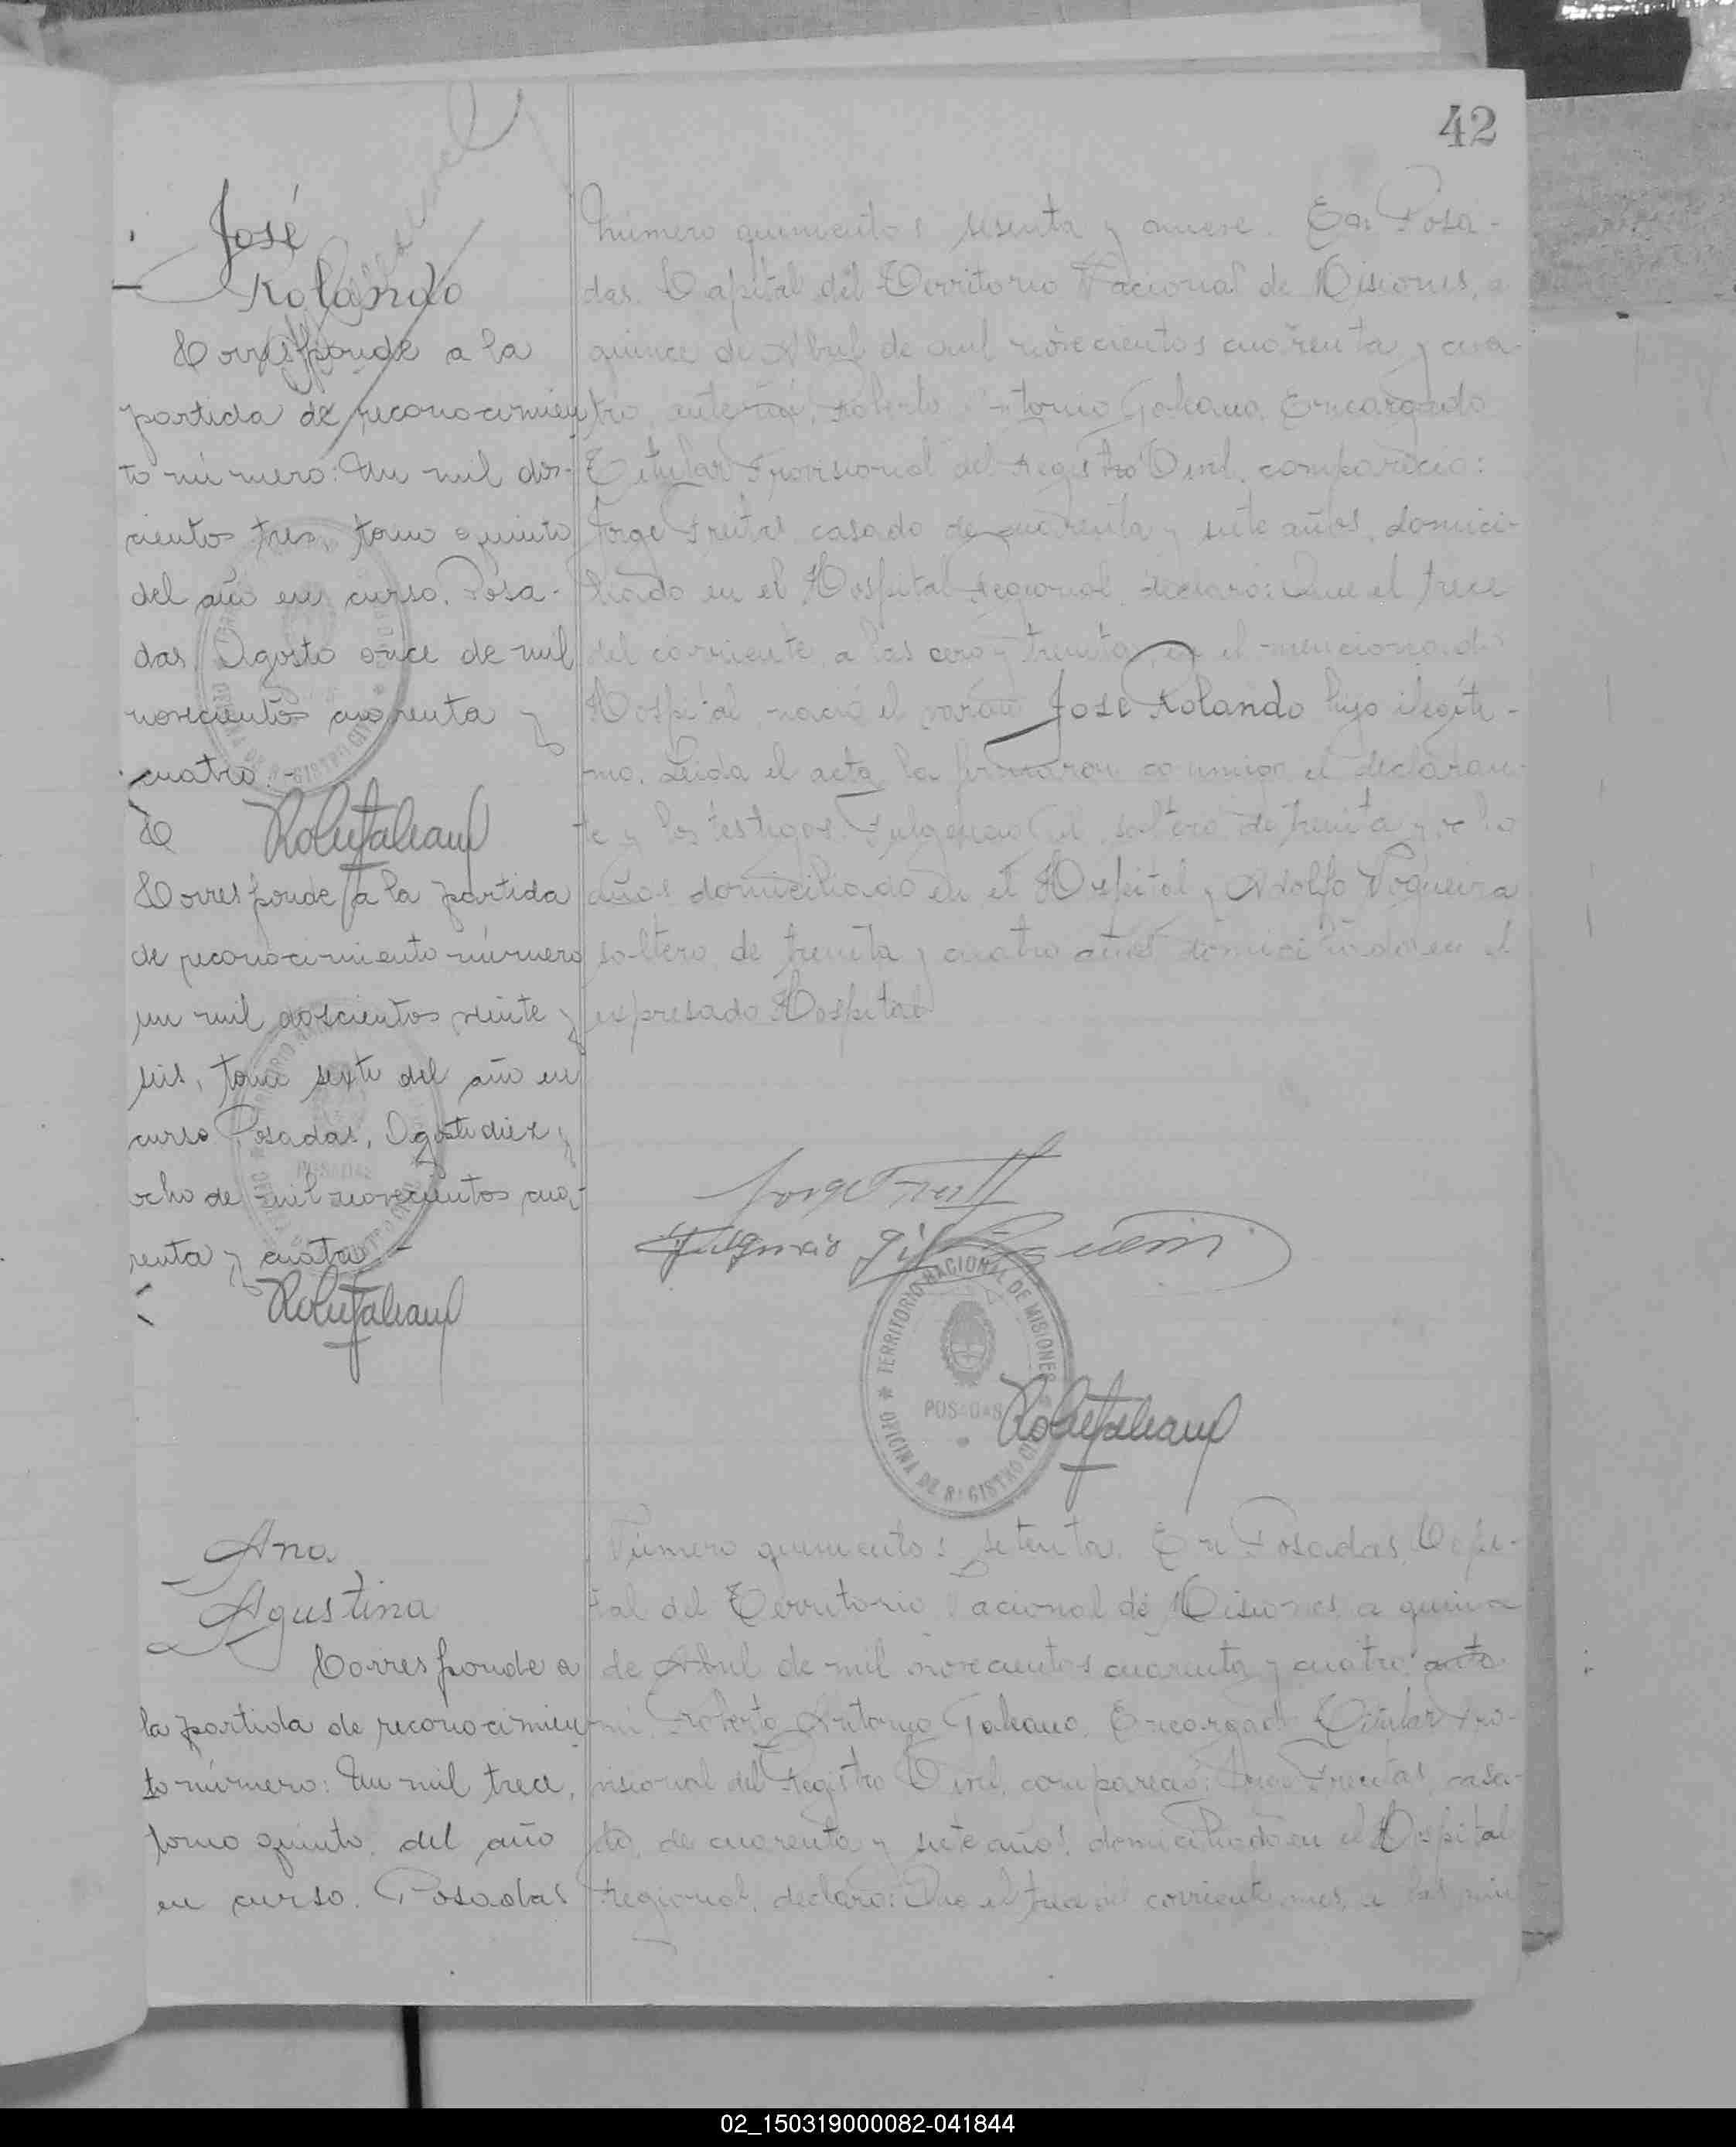 42
José
Rolando
Corresponde a la
partida de reconocimien
to número: Un mil dos-
cientos tres, tomo quinto
del año en curso. Posa-
das, Agosto once de mil
novecientos cuarenta y
cuatro.-
Corresponde a la partida
de reconocimiento número
un mil doscientos veinte y
seis, tomo sexto del año en
curso Posadas, Agosto diez y
ocho de mil novecientos cua-
renta y cuatro.-
Número quinientos sesenta y nueve. En Posa-
das Capital del Territorio Nacional de Misiones, a
quince de Abril de mil novecientos cuarenta y cua-
tro, ante mí, Roberto Antonio Galeano, Encargado
Titular Provisional del Registro Civil, compareció:
Jorge Freitas, casado de cuarenta y siete años, domici-
liado en el Hospital Regional, declaró: Que el trece
del corriente, a las cero y treinta, en el mencionado
Hospital, nació el varón José Rolando hijo ilegíti-
mo. Leída el acta la firmaron conmigo el declaran-
te y los testigos, Fulgencio Gil, soltero, de treinta y ocho
años domiciliado en el Hospital y Adolfo Nogueira
soltero, de treinta y cuatro años domiciliado en el
expresado Hospital
Jorge Freitas
Fulgencio Gil
TERRITORIO NACIONAL DE MISIONES
POSADAS
OFICINA DE REGISTRO CIVIL
Ana
Agustina
Corresponde a
la partida de reconocimien
to número: Un mil trece,
tomo quinto, del año
en curso. Posadas
Número quinientos setenta. En Posadas, Capi-
tal del Territorio Nacional de Misiones, a quince
de Abril de mil novecientos cuarenta y cuatro ante
mí, Roberto Antonio Galeano, Encargado Titular Pro-
visional del Registro Civil, compareció: Jorge Freitas, casa-
do, de cuarenta y siete años, domiciliado en el Hospital
Regional, declaró: Que el trece del corriente mes, a las
02_150319000082-041844